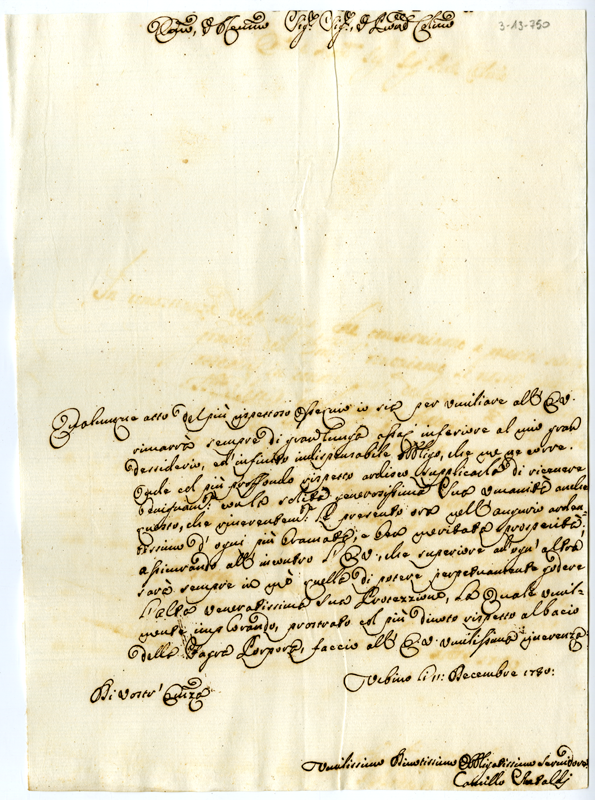 3-13-750
Em̃o, e Rm̃o Sig.r Sig.r, e Pron̄ Colmo
Qualunque atto del più rispettoso ossequio io sia per umiliare all' E.V.
rimarrà sempre di gran lunga assai inferiore al mio gran
dessiderio, ed infinito indispensabile obbligo, che me ne corre.
Quale col più proffondo rispetto ardisco supplicarla di ricevere
benignam.e con la solita generosissima Sua umanità anche
questo, che riverentem.e Le presento ora nell' augurio arden-
tissimo d' ogni più bramata, e ben meritata prosperità;
assicurando all' incontro l' E.V., che superiore ad ogn' altra
sarà sempre in me quella di potere perpetuamente godere
l' alta veneratissima Sua Protezzione, La quale umil-
mente implorando, prostrato col più divoto rispetto al bacio
della Sagra Porpora, faccio all' E.V. umilissima riverenza
Urbino li 11: Decembre 1750:
Di Vostr' Em̃za
Umilissimo Divotissimo Obbligatissimo Servidore
Camillo